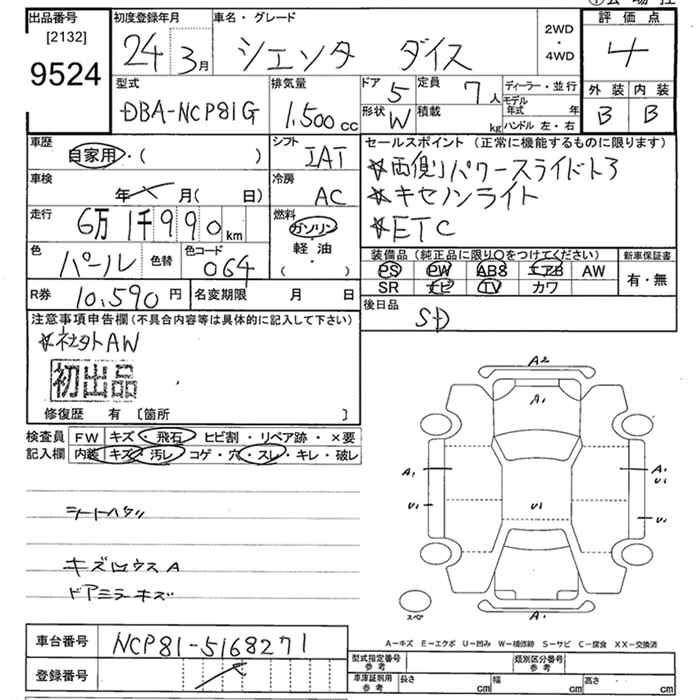 出品番号 初度登録年月 車名・グレード 2WD 評価点
[2132] 24年3月 シエンタ ダイス ・ 4
9524 4WD
型式 排気量 ドア 5 定員 7人 ディーラー・並行 外装 内装
DBA-NCP81G 1,500cc 形状 W 積載 kg モデル年式 年 B B
ハンドル 左・右
車歴 自家用・( ) シフト IAT セールスポイント (正常に機能するものに限ります)
車検 年 月( 日) 冷房 AC ☆両側パワースライドドア
走行 6万1千990km 燃料 ガソリン・軽油・( ) ☆キセノンライト
☆ETC
色 パール 色替 色コード 064 装備品 (純正品に限り○をつけてください) 新車保証書
PS PW ABS エアB AW 有・無
SR ナビ TV カワ
R券 10,590円 名変期限 月 日 後日品
SD
注意事項申告欄(不具合内容等は具体的に記入して下さい)
☆社外AW
初出品
修復歴 有 [箇所 ]
検査員 FW キズ・飛石・ヒビ割・リペア跡・×要
記入欄 内装 キズ・汚レ・コゲ・穴・スレ・キレ・破レ
A2
A1
A1 A1
U1
U1 U1 U1
A1
スペア
シートヘタリ
ドアミラーキズ
A-キズ E-エクボ U-凹み W-補修跡 S-サビ C-腐食 XX-交換済
車台番号 NCP81-5168271
登録番号
型式指定番号 参考 類別区分番号 参考
車庫証明用 参考 長さ cm 幅 cm 高さ cm